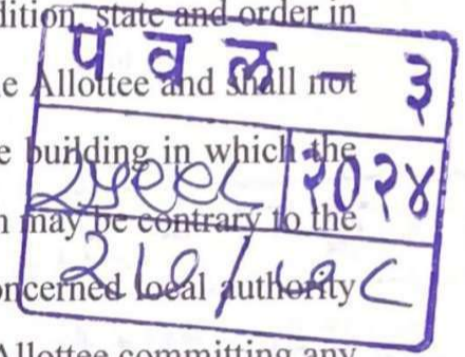 dition, state and order in
प व ल - ३
e Allottee and shall not
e building in which the
२०२४
n may be contrary to the
oncerned local authority
Allottee committing any